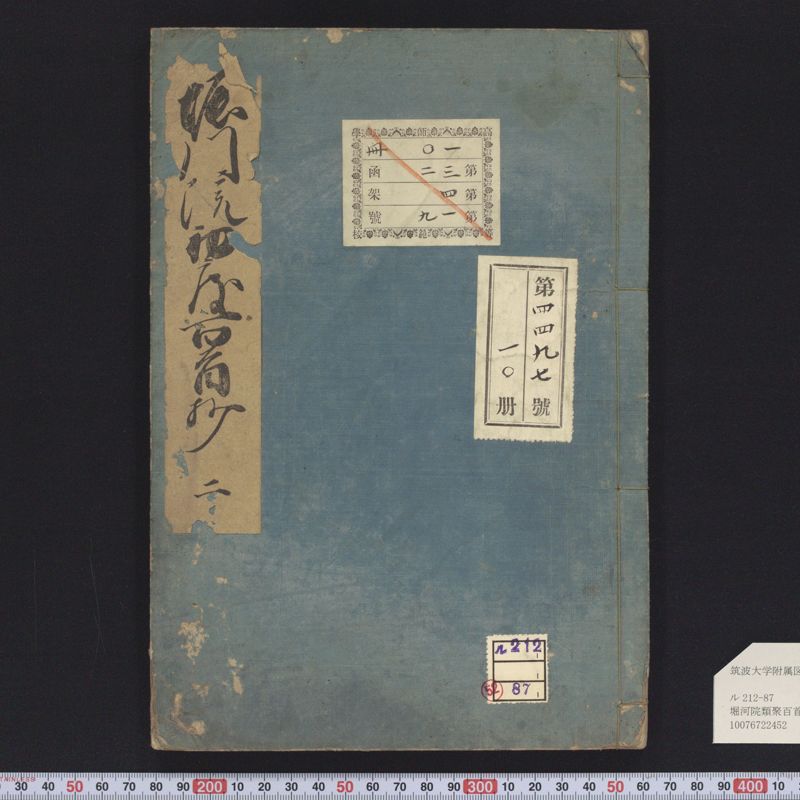 堀川院初度百首抄 二
高等師範學校
一〇冊
第三二函
第四架
第一九號
第四四九七號
一〇册
ル212
52 87
筑波大学附属
ル 212-87
堀河院類聚百首
10076722452
20 30 40 50 60 70 80 90 200 10 20 30 40 50 60 70 80 90 300 10 20 30 40 50 60 70 80 90 400 10